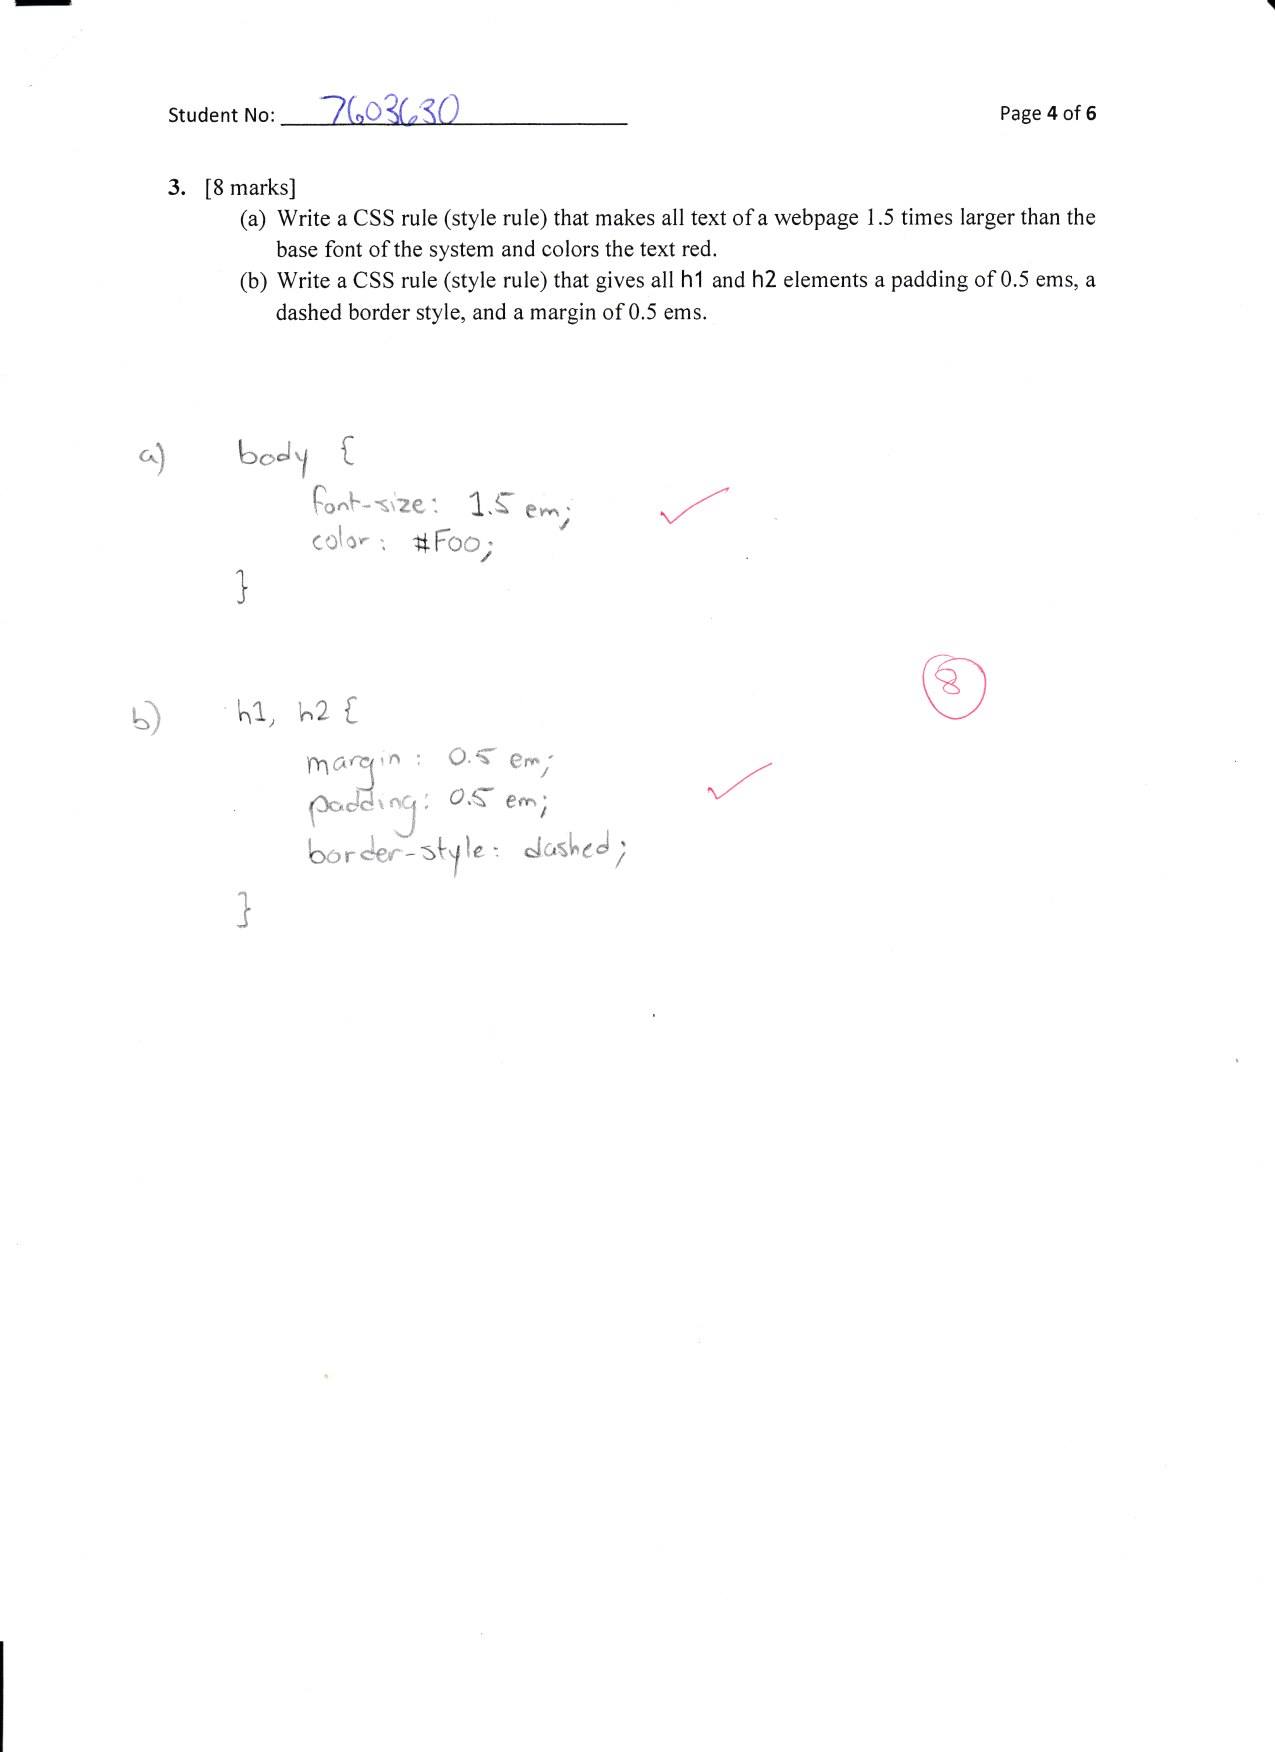 Student No: 7603630
Page 4 of 6
3. [8 marks]
(a) Write a CSS rule (style rule) that makes all text of a webpage 1.5 times larger than the
base font of the system and colors the text red.
(b) Write a CSS rule (style rule) that gives all h1 and h2 elements a padding of 0.5 ems, a
dashed border style, and a margin of 0.5 ems.
a) body {
font-size: 1.5 em;
color: #F00;
}
8
b) h1, h2 {
margin: 0.5 em;
padding: 0.5 em;
border-style: dashed;
}